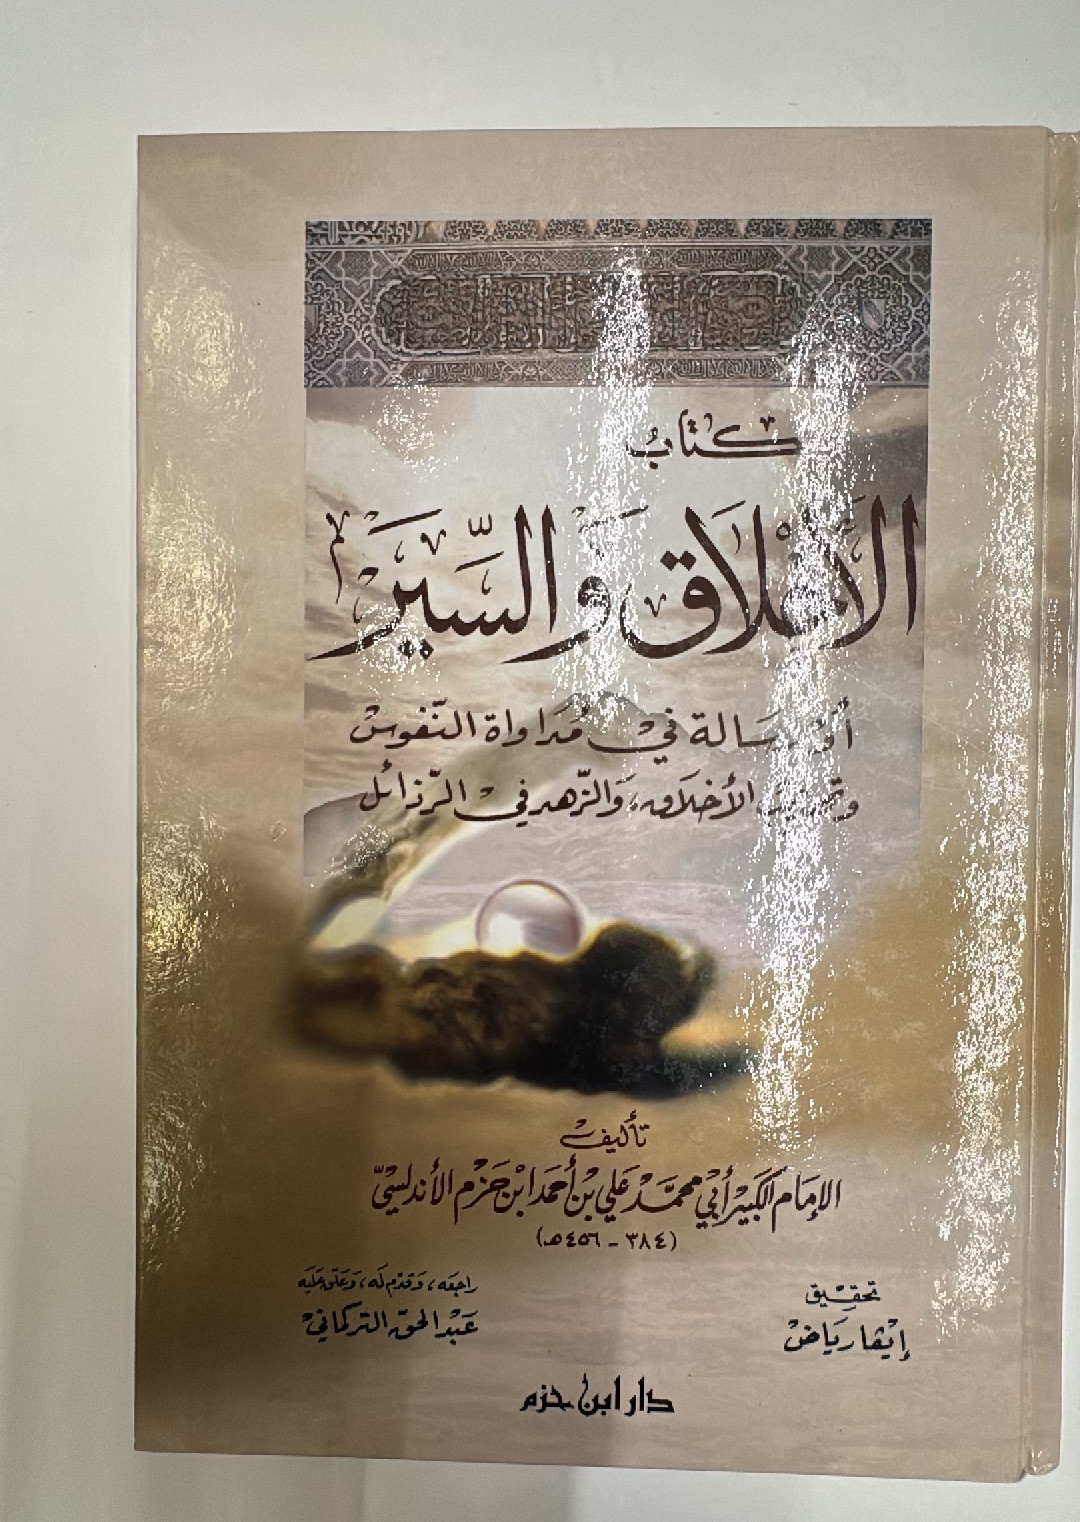 كتاب
الأخلاق والسير
أو رسالة في مداواة النفوس
وتهذيب الأخلاق، والزهد في الرذائل
تأليف
الإمام الكبير أبي محمد علي بن أحمد ابن حزم الأندلسي
(٣٨٤ - ٤٥٦هـ)
تحقيق
إيڤا رياض
راجعه، وقدم له، وعلق عليه
عبد الحق التركماني
دار ابن حزم